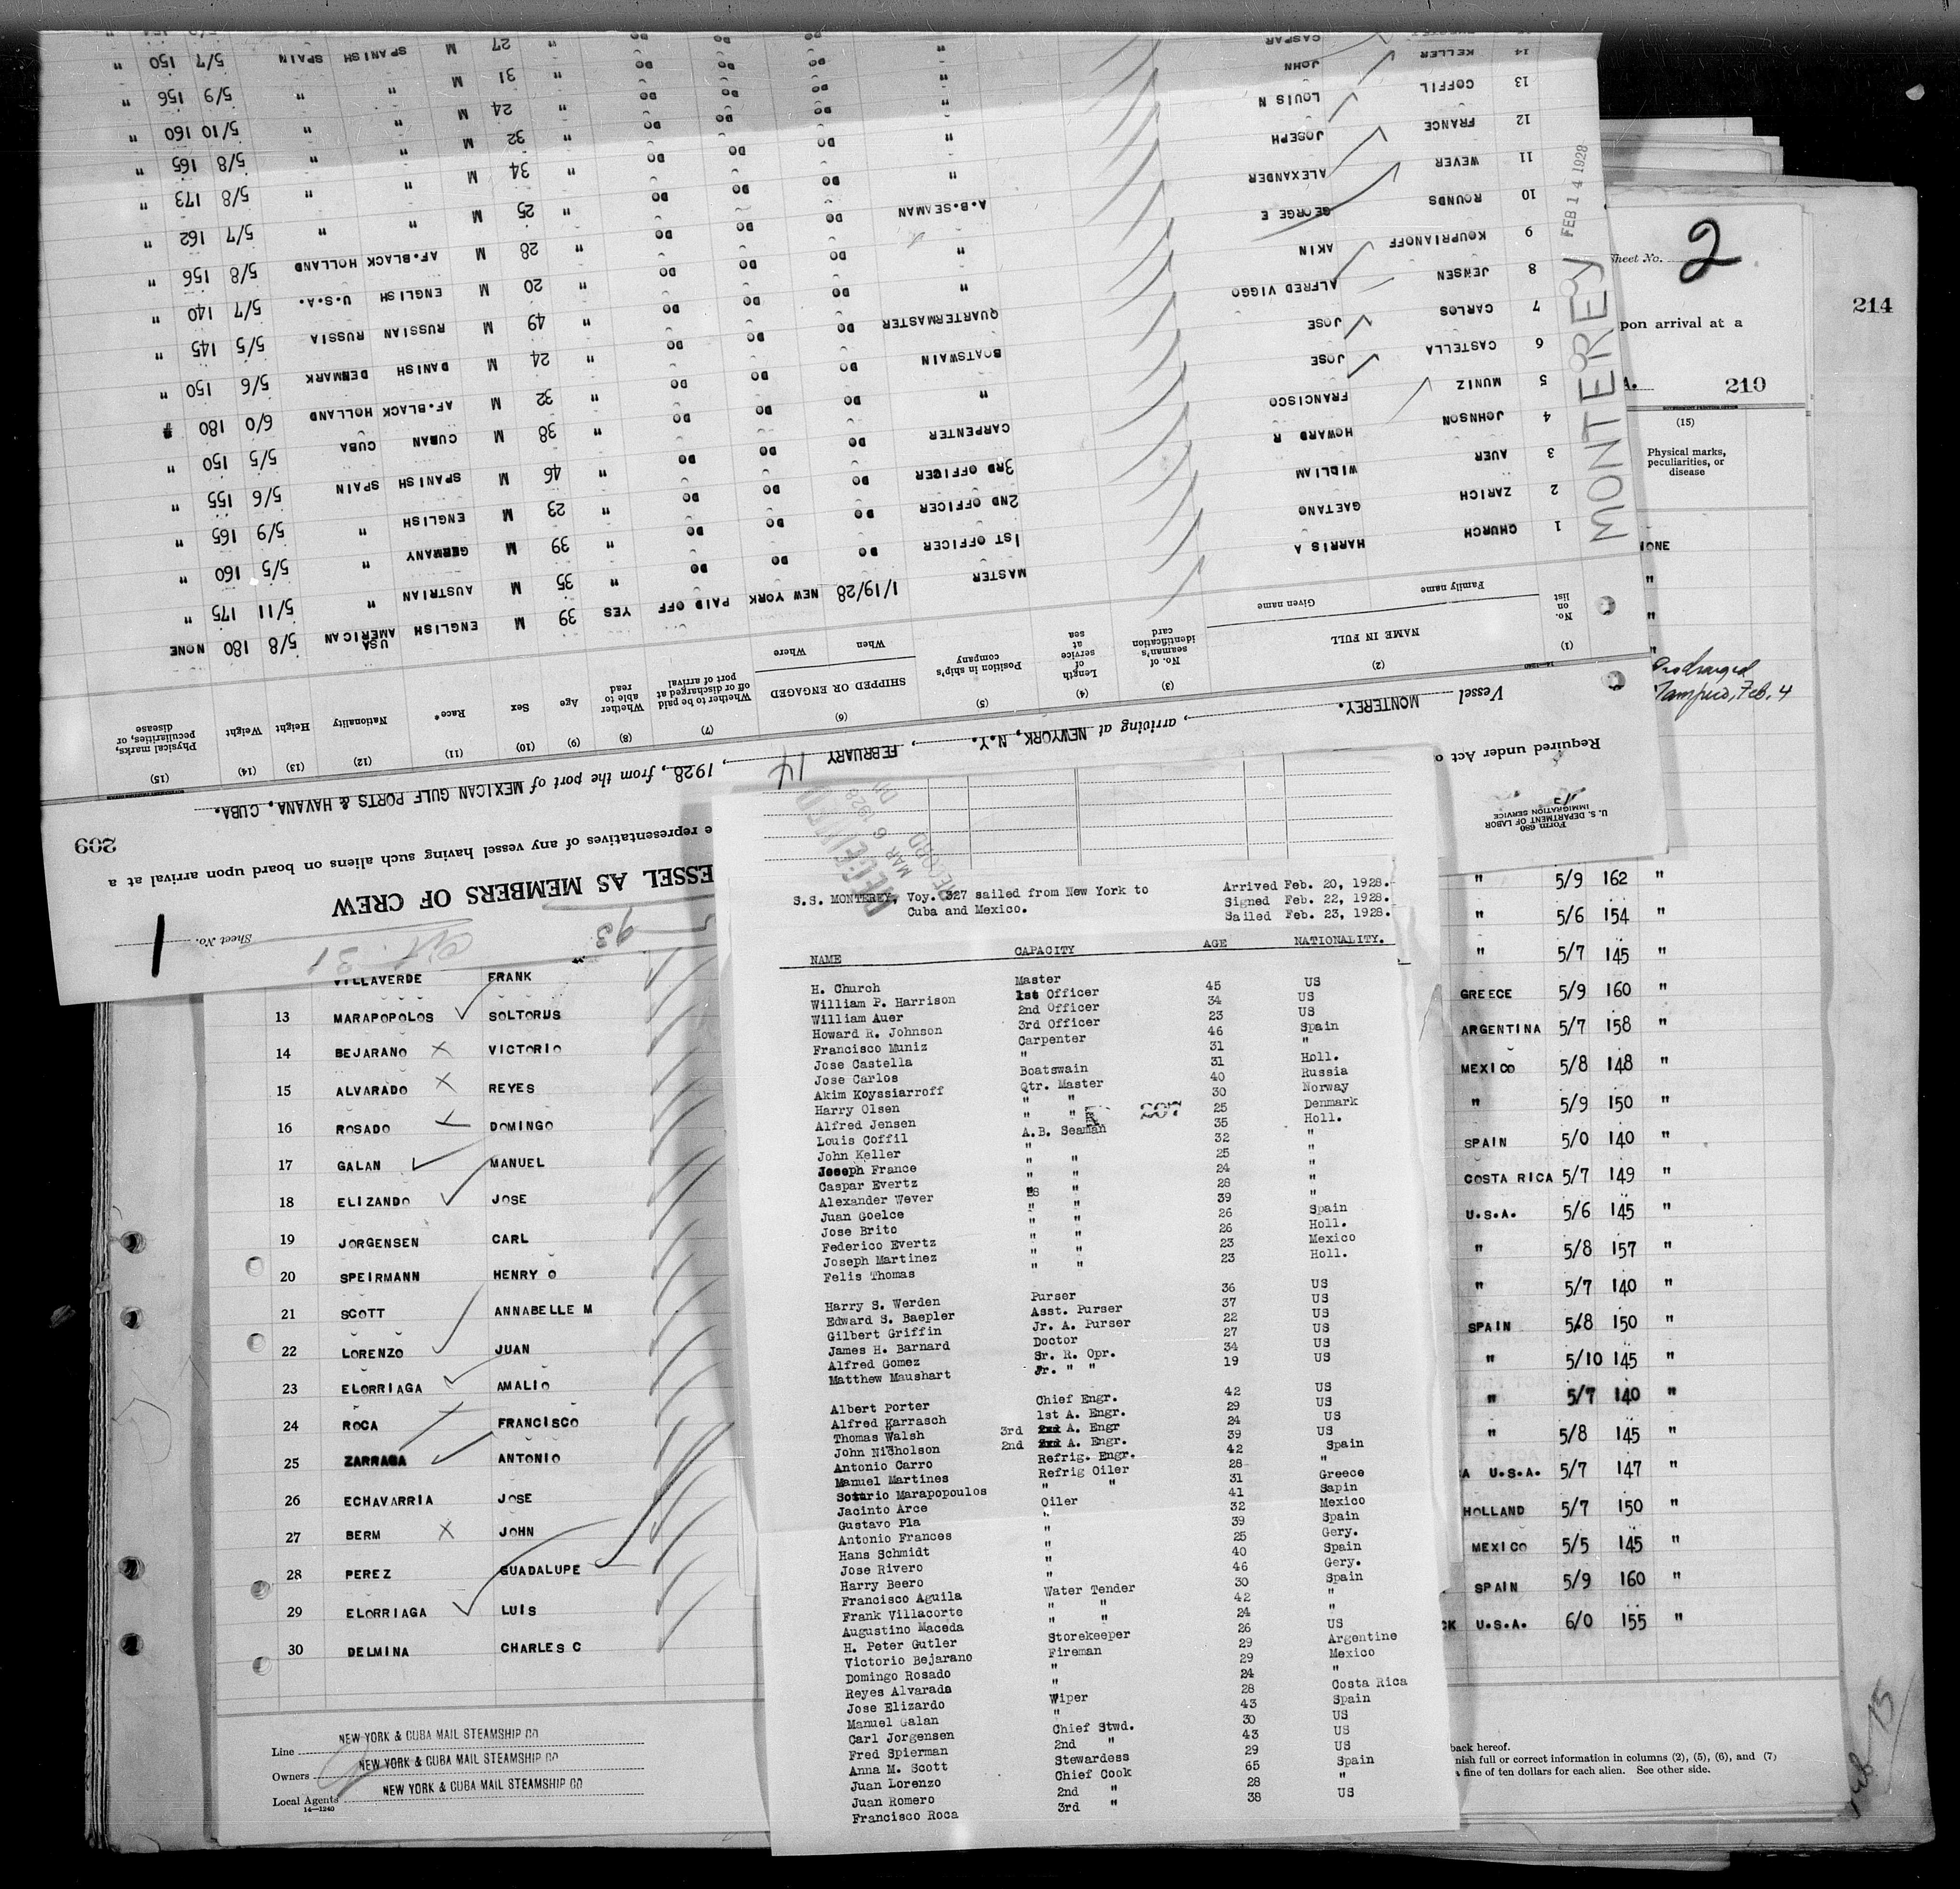 Form 680
U. S. DEPARTMENT OF LABOR
IMMIGRATION SERVICE
Sheet No. 1
ESSEL AS MEMBERS OF CREW
209
Required under Act o
e representatives of any vessel having such aliens on board upon arrival at a
Vessel MONTEREY. , arriving at NEWYORK, N.Y. , FEBRUARY 14 , 1928, from the port of MEXICAN GULF PORTS & HAVANA, CUBA.
(1) (2) (3) (4) (5) (6) (7) (8) (9) (10) (11) (12) (13) (14) (15)
No. on list NAME IN FULL Family name Given name No. of seaman's identification card Length of service at sea Position in ship's company SHIPPED OR ENGAGED When Where Whether to be paid off or discharged at port of arrival Whether able to read Age Sex Race* Nationality Height Weight Physical marks, peculiarities, or disease
1 CHURCH HARRIS A MASTER 1/19/28 NEW YORK PAID OFF YES 39 M ENGLISH USA AMERICAN 5/8 180 NONE
2 ZARICH GAETANO 1ST OFFICER DO DO DO " 35 M AUSTRIAN " 5/11 175 "
3 AUER WILLIAM 2ND OFFICER DO DO DO " 39 M GERMANY " 5/5 160 "
4 JOHNSON HOWARD R 3RD OFFICER DO DO DO " 23 M ENGLISH " 5/9 165 "
5 MUNIZ FRANCISCO CARPENTER DO DO DO " 46 M SPANISH SPAIN 5/6 155 "
6 CASTELLA JOSE " DO DO DO " 38 M CUBAN CUBA 5/5 150 "
7 CARLOS JOSE BOATSWAIN DO DO DO " 32 M AF.BLACK HOLLAND 6/0 180 "
8 JENSEN ALFRED VIGGO QUARTERMASTER DO DO DO " 24 M DANISH DENMARK 5/6 150 "
9 KOUPRIANOFF AKIN " DO DO DO " 49 M RUSSIAN RUSSIA 5/5 145 "
10 ROUNDS GEORGE E " DO DO DO " 20 M ENGLISH U.S.A. 5/7 140 "
11 WEVER ALEXANDER A.B.SEAMAN DO DO DO " 28 M AF.BLACK HOLLAND 5/8 156 "
12 FRANCE JOSEPH " DO DO DO " 25 M " " 5/7 162 "
13 COFFIL LOUIS N " DO DO DO " 34 M " " 5/8 173 "
14 KELLER JOHN " DO DO DO " 32 M " " 5/8 165 "
CASPAR " DO DO DO " 24 M " " 5/10 160 "
31 M " " 5/9 156 "
27 M SPANISH SPAIN 5/7 150 "
MONTEREY FEB 14 1928
Sheet No. 2
214
pon arrival at a
210
(15)
Physical marks, peculiarities, or disease
Tampico, Feb. 4
RECEIVED
MAR 6 1928
RECORD
S.S. MONTEREY, Voy. 327 sailed from New York to
Cuba and Mexico.
Arrived Feb. 20, 1928.
Signed Feb. 22, 1928.
Sailed Feb. 23, 1928.
NAME CAPACITY AGE NATIONALITY.
H. Church Master
William P. Harrison 1st Officer 45 US
William Auer 2nd Officer 34 US
Howard R. Johnson 3rd Officer 23 US
Francisco Muniz Carpenter 46 Spain
Jose Castella " 31 "
Jose Carlos Boatswain 31 Holl.
Akim Koyssiarroff Qtr. Master 40 Russia
Harry Olsen " " 30 Norway
Alfred Jensen " " 25 Denmark
207
Louis Coffil A.B. Seaman 35 Holl.
John Keller " " 32 "
Joseph France " " 25 "
Caspar Evertz " " 24 "
Alexander Wever " " 28 "
Juan Goelce " " 39 "
Jose Brito " " 26 Spain
Federico Evertz " " 26 Holl.
Joseph Martinez " " 23 Mexico
Felis Thomas " " 23 Holl.
Harry S. Werden Purser 36 US
Edward S. Baepler Asst. Purser 37 US
Gilbert Griffin Jr. A. Purser 22 US
James H. Barnard Doctor 27 US
Alfred Gomez Sr. R. Opr. 34 US
Matthew Maushart Jr. " " 19 US
Albert Porter Chief Engr. 42 US
Alfred Karrasch 1st A. Engr. 29 US
Thomas Walsh 3rd A. Engr 24 US
John Nicholson 2nd A. Engr. 39 US
Antonio Carro Refrig. Engr. 42 Spain
Manuel Martines Refrig Oiler 28 "
Sotario Marapopoulos " " 31 Greece
Jacinto Arce Oiler 41 Sapin
Gustavo Pla " 32 Mexico
Antonio Frances " 39 Spain
Hans Schmidt " 25 Gery.
Jose Rivero " 40 Spain
Harry Beero " 46 Gery.
Francisco Aguila Water Tender 30 Spain
Frank Villacorte " " 42 "
Augustino Maceda " " 24 "
H. Peter Gutler Storekeeper 26 US
Victorio Bejarano Fireman 29 Argentine
Domingo Rosado " 29 Mexico
Reyes Alvarada " 24 "
Jose Elizardo Wiper 28 Costa Rica
Manuel Galan " 43 Spain
Carl Jorgensen Chief Stwd. 30 US
Fred Spierman 2nd " 43 US
Anna M. Scott Stewardess 29 US
Juan Lorenzo Chief Cook 65 Spain
Juan Romero 2nd " 28 "
Francisco Roca 3rd " 38 US
VILLAVERDE FRANK
13 MARAPOPOLOS SOLTORUS GREECE 5/9 160 "
14 BEJARANO VICTORIO ARGENTINA 5/7 158 "
15 ALVARADO REYES MEXICO 5/8 148 "
16 ROSADO DOMINGO " 5/9 150 "
17 GALAN MANUEL SPAIN 5/0 140 "
18 ELIZANDO JOSE COSTA RICA 5/7 149 "
19 JORGENSEN CARL U.S.A. 5/6 145 "
20 SPEIRMANN HENRY O " 5/8 157 "
21 SCOTT ANNABELLE M " 5/7 140 "
22 LORENZO JUAN SPAIN 5/8 150 "
23 ELORRIAGA AMALIO " 5/10 145 "
24 ROCA FRANCISCO " 5/7 140 "
25 ZARRAGA ANTONIO " 5/8 145 "
26 ECHAVARRIA JOSE U.S.A. 5/7 147 "
27 BERM JOHN HOLLAND 5/7 150 "
28 PEREZ GUADALUPE MEXICO 5/5 145 "
29 ELORRIAGA LUIS SPAIN 5/9 160 "
30 DELMINA CHARLES C U.S.A. 6/0 155 "
" 5/9 162 "
" 5/6 154 "
" 5/7 145 "
Line NEW YORK & CUBA MAIL STEAMSHIP CO
Owners NEW YORK & CUBA MAIL STEAMSHIP CO
Local Agents NEW YORK & CUBA MAIL STEAMSHIP CO
14—1240
back hereof.
nish full or correct information in columns (2), (5), (6), and (7)
a fine of ten dollars for each alien. See other side.